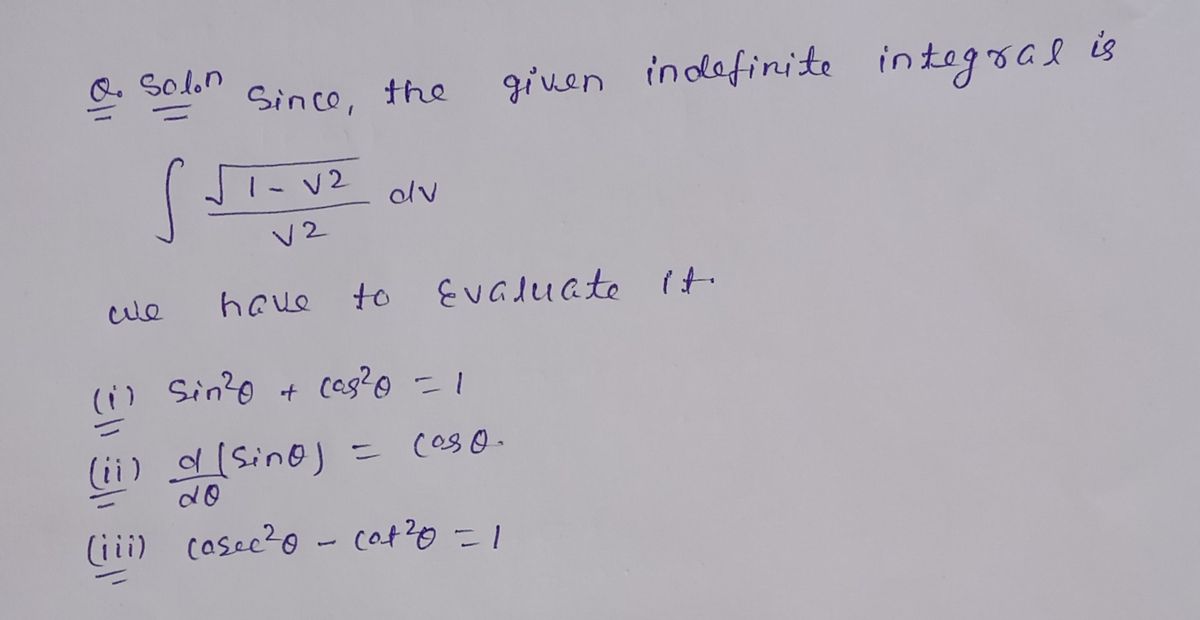 Q. Sol.n Since, the given indefinite integral is
∫ √1-v2 / v2 dv
we have to Evaluate it.
(i) Sin²θ + cos²θ = 1
(ii) d/dθ (Sinθ) = cosθ.
(iii) cosec²θ - cot²θ = 1